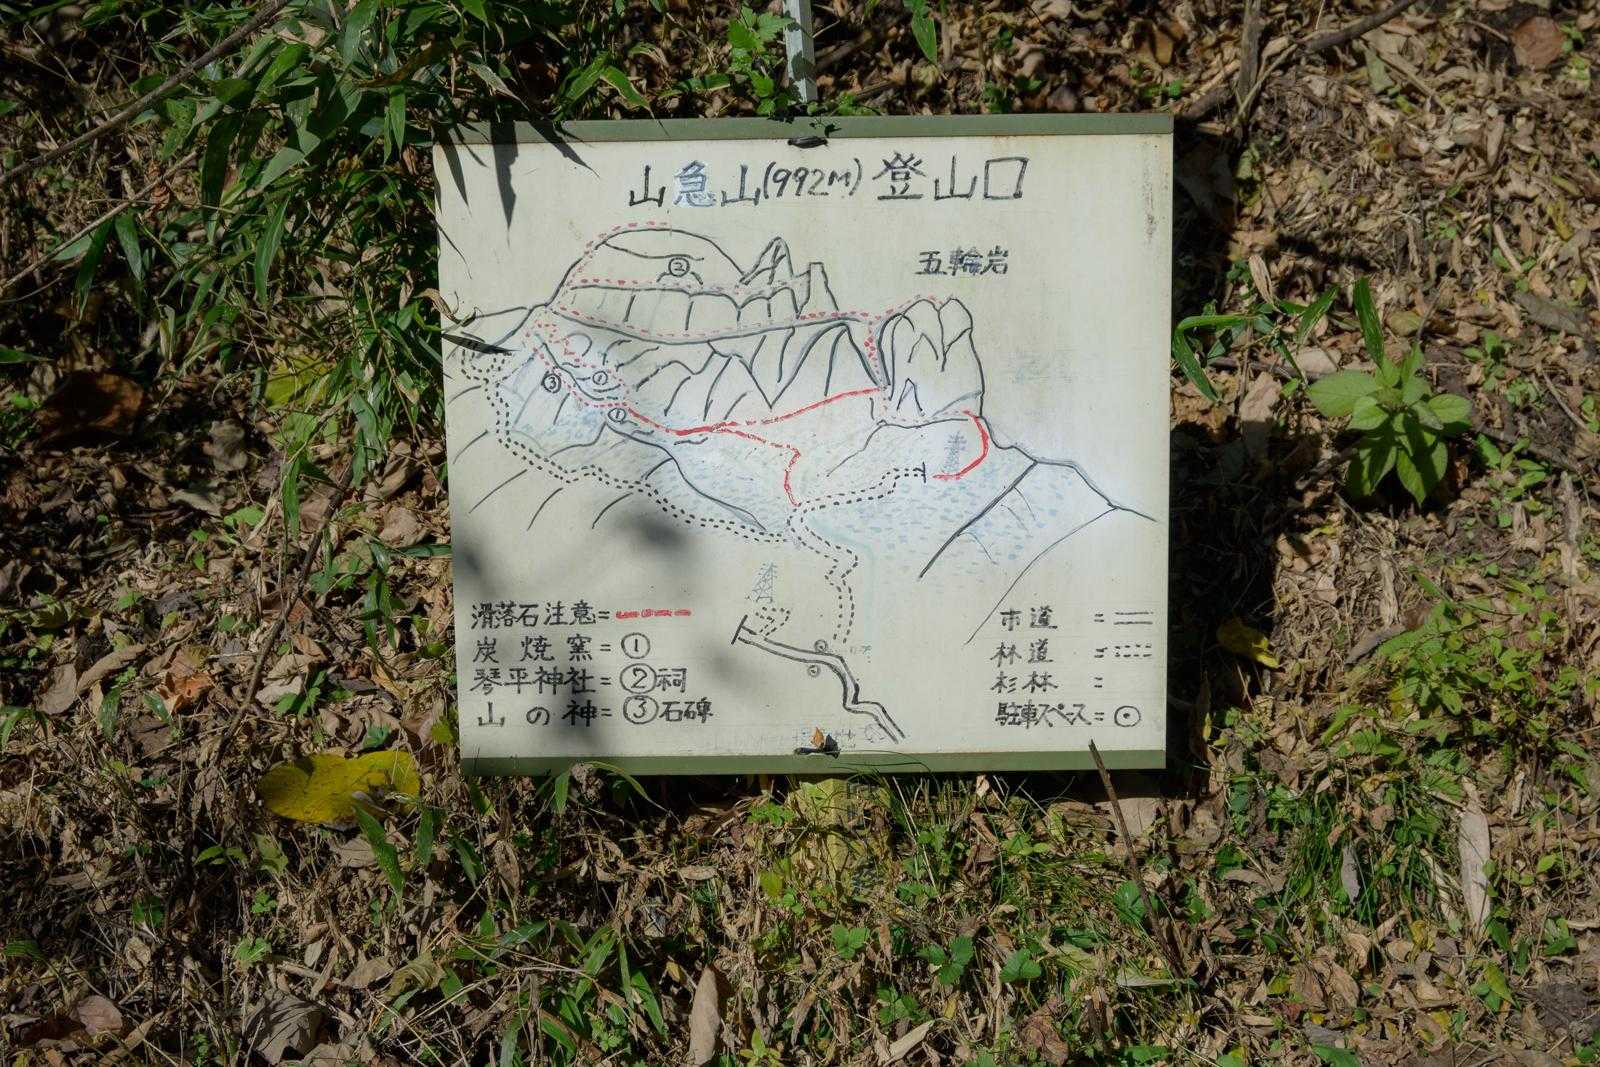 山急山(992M)登山口
五輪岩
②
③
①
①
滑落石注意=
炭焼窯=①
琴平神社=②祠
山の神=③石碑
市道=
林道=
杉林=
駐車スペース=⊙